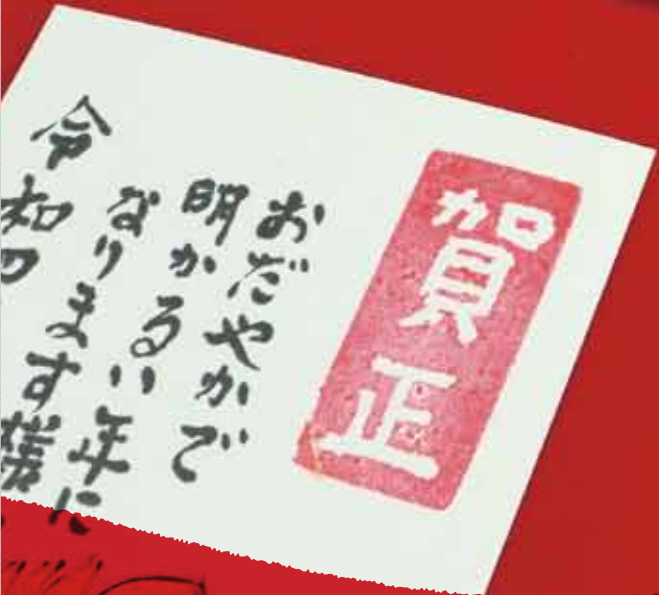 賀正
おだやかで
明かるい年に
なります様
令和